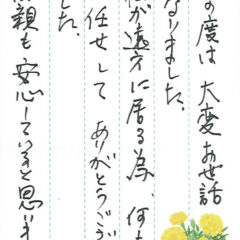 の度は 大変お世話
なりました。
が遠方に居る為、何
任せして ありがとうご
した。
親も 安心していると思いま